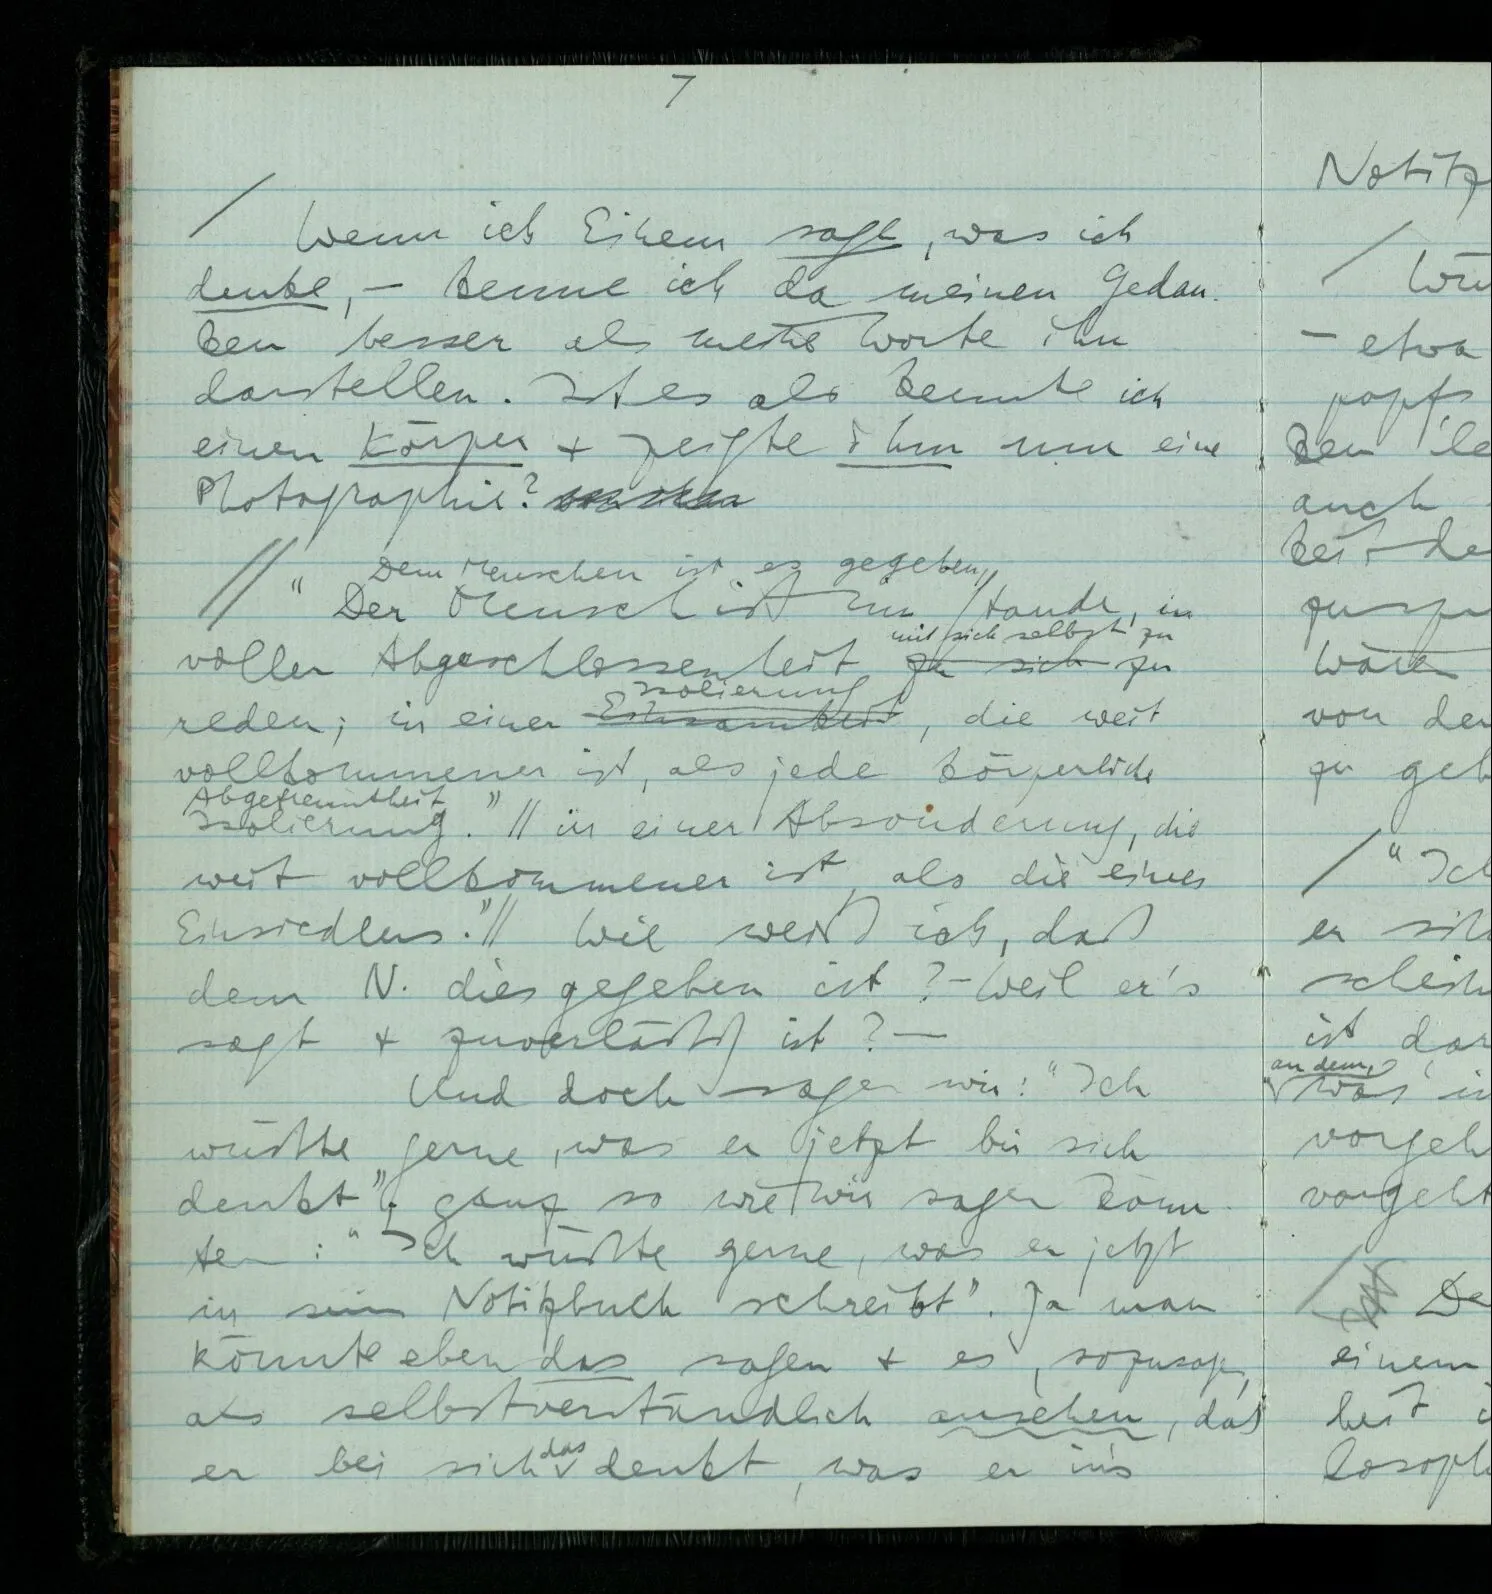 7
/ Wenn ich Einem sage, was ich
denke, – kenne ich da meinen Gedan-
ken besser als meine Worte ihn
darstellen. Ist es als kennte ich
einen Körper & zeigte ihm nur eine
Photographie?
Dem Menschen ist es gegeben,
// " Der Mensch ist im Stande, in
mit sich selbst zu
voller Abgeschlossenheit zu sich zu
Isolierung
reden; in einer Einsamkeit, die weit
vollkommener ist, als jede körperliche
Abgetrenntheit
Isolierung." // in einer Absonderung, die
weit vollkommener ist, als die eines
Einsiedlers."// Wie weiß ich, daß
dem N. dies gegeben ist? – Weil er's
sagt & zuverläßig ist? –
Und doch sagen wir: "Ich
wüßte gerne, was er jetzt bei sich
denkt", ganz so wie wir sagen könn-
ten: "Ich wüßte gerne, was er jetzt
in sein Notizbuch schreibt". Ja man
könnte eben das sagen & es, sozusagen,
als selbstverständlich ansehen, daß
das
er bei sich denkt, was er in's
Notitz
/ Wü
– etwa
popfs
ken le
auch
keit de
zu sp
wären
von den
zu geb
/ "Ich
er sich
schein
ist dar
an dem,
was in
vorgeh
vorgeht
/ De
einem
heit
losoph